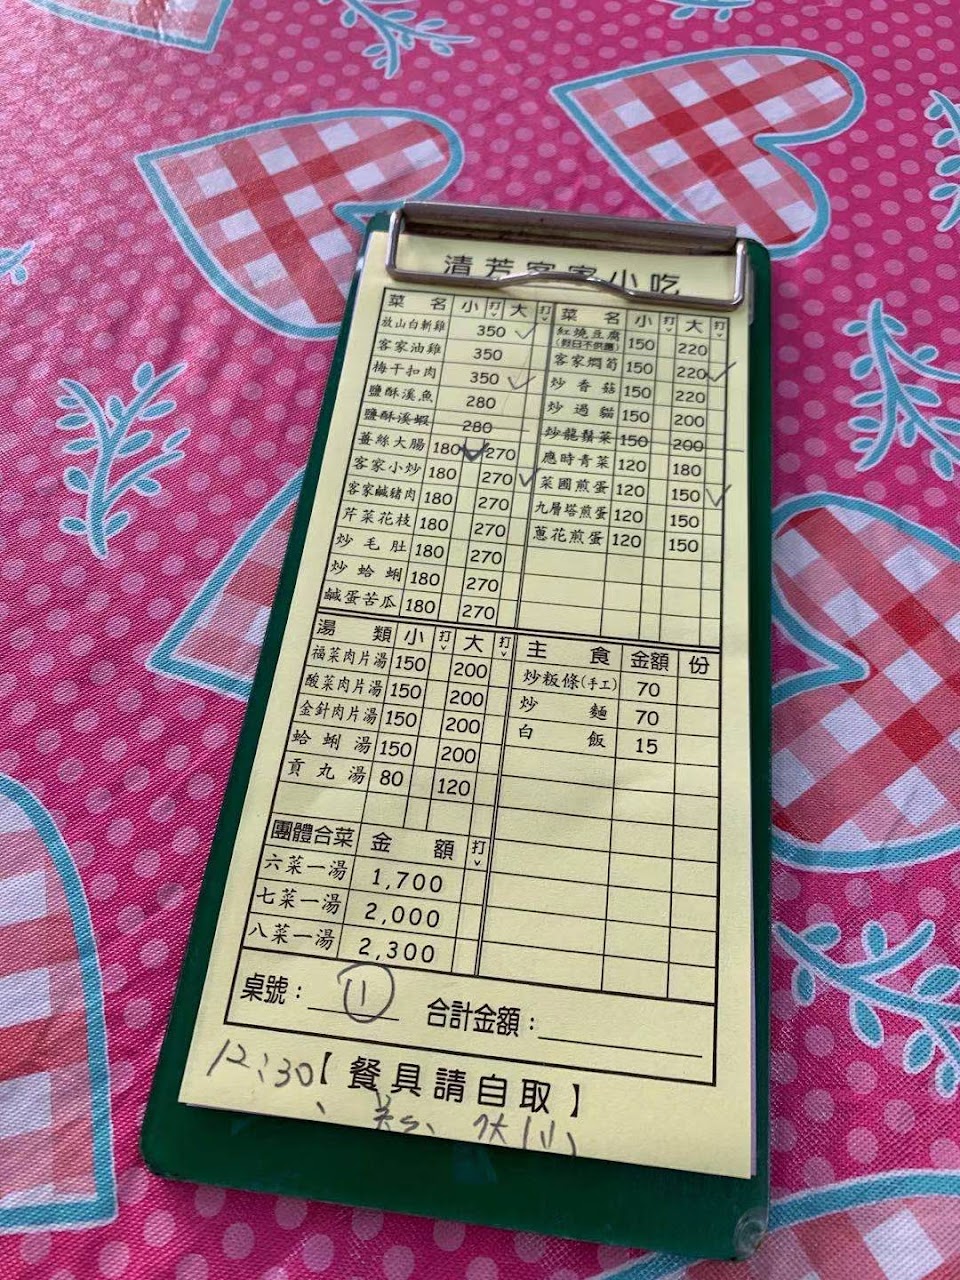 清芳客家小吃
菜名 小 打ˇ 大 打ˇ
放山白斬雞 350 ✓
客家油雞 350
梅干扣肉 350 ✓
鹽酥溪魚 280
鹽酥溪蝦 280
薑絲大腸 180 ✓ 270
客家小炒 180 270 ✓
客家鹹豬肉 180 270
芹菜花枝 180 270
炒毛肚 180 270
炒蛤蜊 180 270
鹹蛋苦瓜 180 270
菜名 小 打ˇ 大 打ˇ
紅燒豆腐 150 220
(假日不供應)
客家燜筍 150 220 ✓
炒香菇 150 220
炒過貓 150 200
炒龍鬚菜 150 200
應時青菜 120 180
菜圃煎蛋 120 150 ✓
九層塔煎蛋 120 150
蔥花煎蛋 120 150
湯類 小 打ˇ 大 打ˇ
福菜肉片湯 150 200
酸菜肉片湯 150 200
金針肉片湯 150 200
蛤蜊湯 150 200
貢丸湯 80 120
主食 金額 份
炒粄條(手工) 70
炒麵 70
白飯 15
團體合菜 金額 打ˇ
六菜一湯 1,700
七菜一湯 2,000
八菜一湯 2,300
桌號： 1 合計金額：
12:30【餐具請自取】